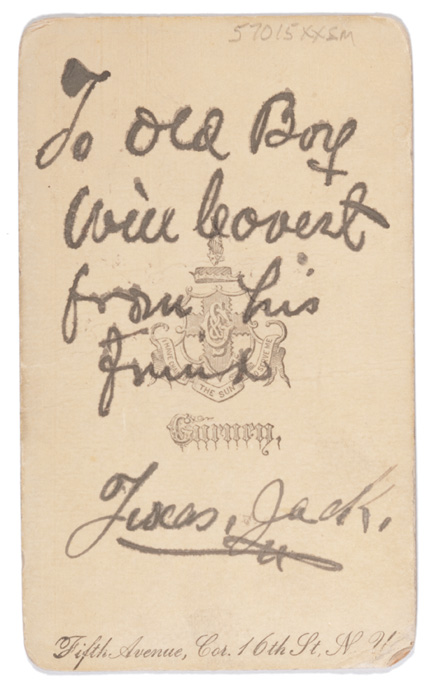 57015XXSM
To Old Boy
Will Covert
from his
Friend
Texas Jack.
THE SUN
Gurney,
Fifth Avenue, Cor. 16th St. N. Y.